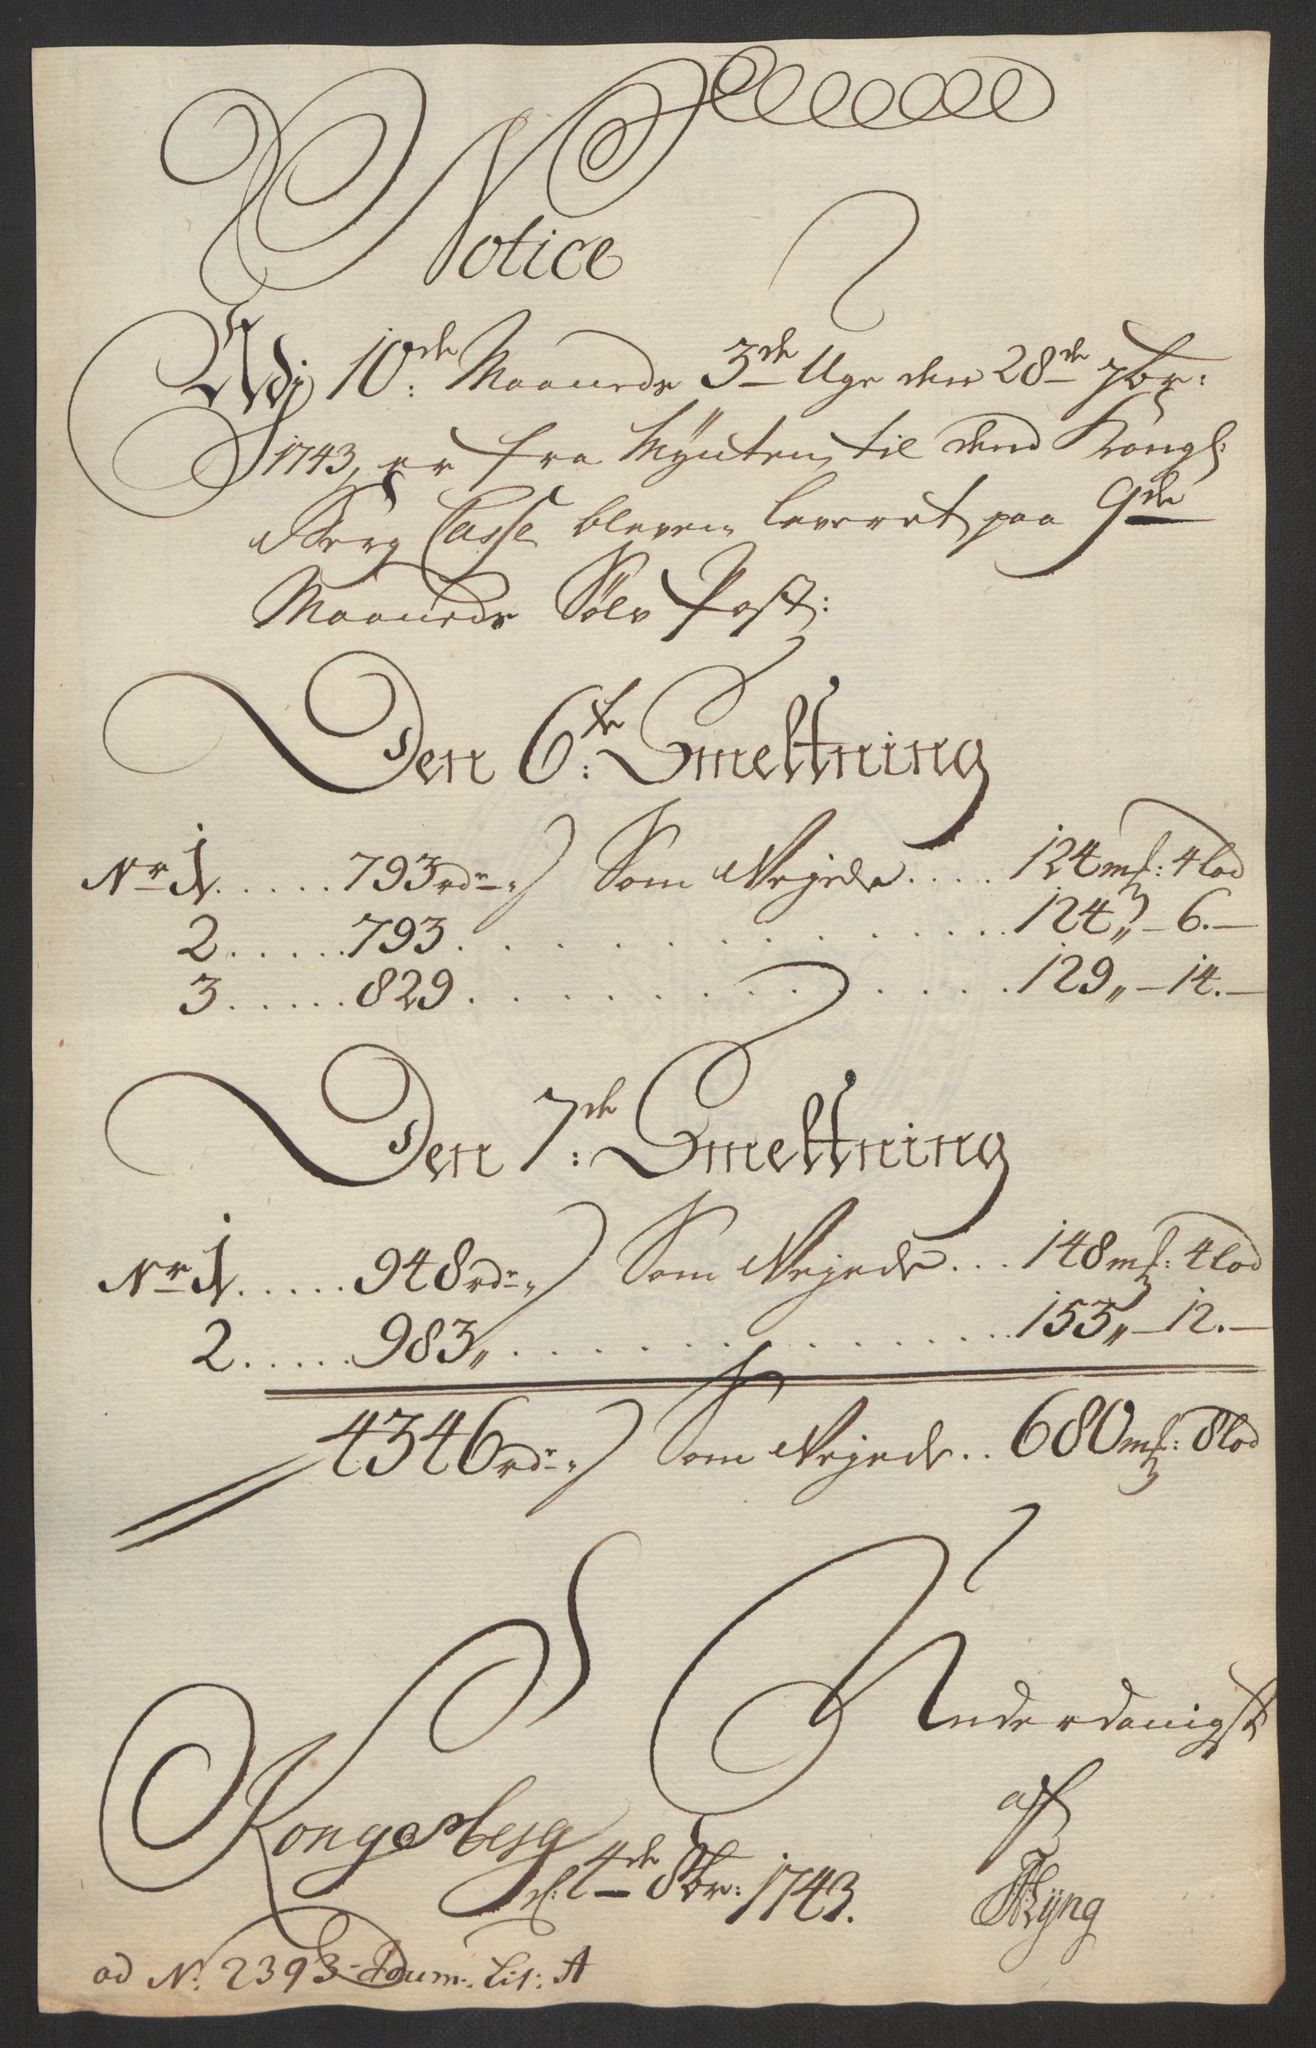 Notice
Adj 10de: Maaneds 3de Uge den 28de 7br:
1743, er fra Mÿnten til dend Kongl:
Berg Casse bleven leveret paa 9de
Maaneds Sölv Post:
Den 6te: Smeltning
Nr 1. . . . . . 793 rdr „ Som Veyede . . . . . 124 mk: 4 lod
2. . . . . . 793. . . . . . . . . . . . . . . . 124 „ – 6. –
3. . . . . . 829. . . . . . . . . . . . . . . . 129 „ – 14. –
Den 7de: Smeltning
Nr 1. . . . . . 948 rdr „ Som Veyede . . . 148 mk: 4 lod
2. . . . . . 983 „ . . . . . . . . . . . . . . . 153 „ – 12. –
4346 rdr „ Som Veyede . . 680 mk: 8 lod
Underdanigst
af
Kongsberg
d: 4de 8br: 1743.
ad No: 2393 Lit: A